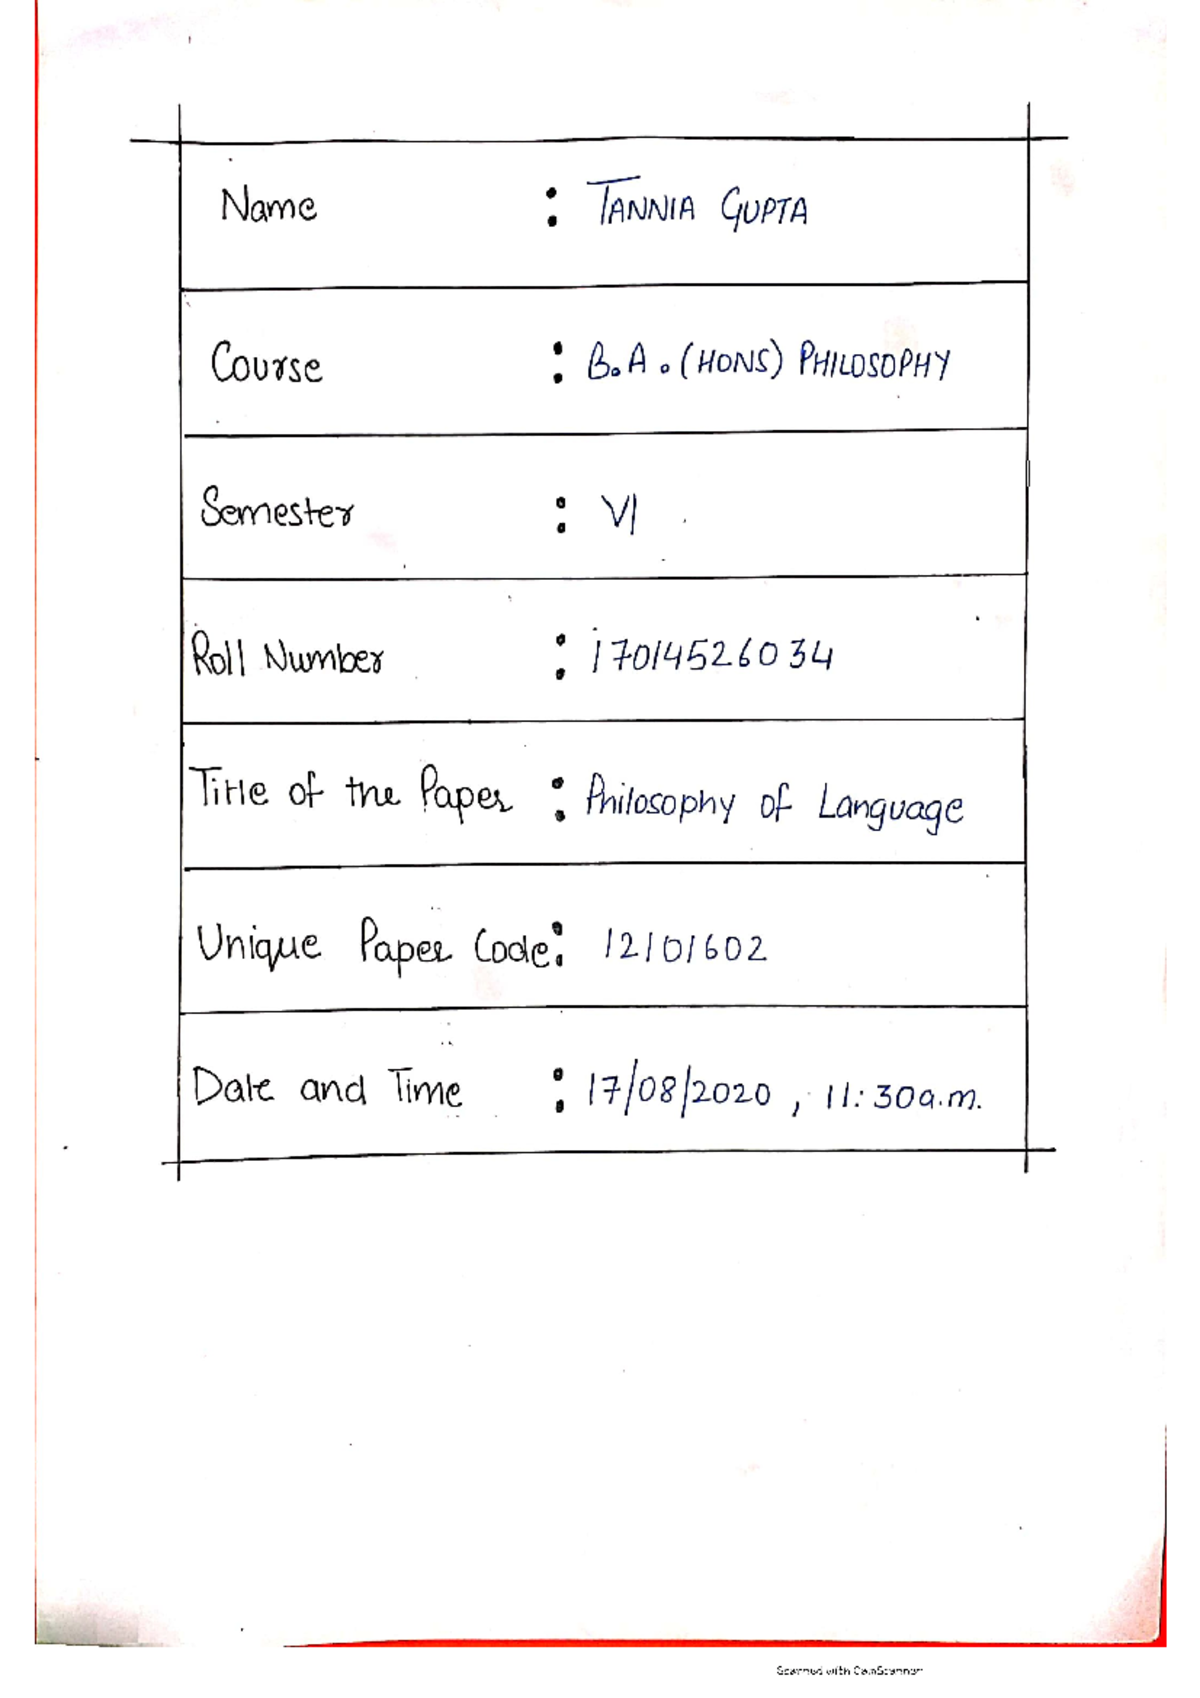 Name : TANNIA GUPTA
Course : B.A. (HONS) PHILOSOPHY
Semester : VI
Roll Number : 17014526034
Title of the Paper : Philosophy of Language
Unique Paper Code: 12101602
Date and Time : 17/08/2020, 11:30a.m.
Scanned with CamScanner